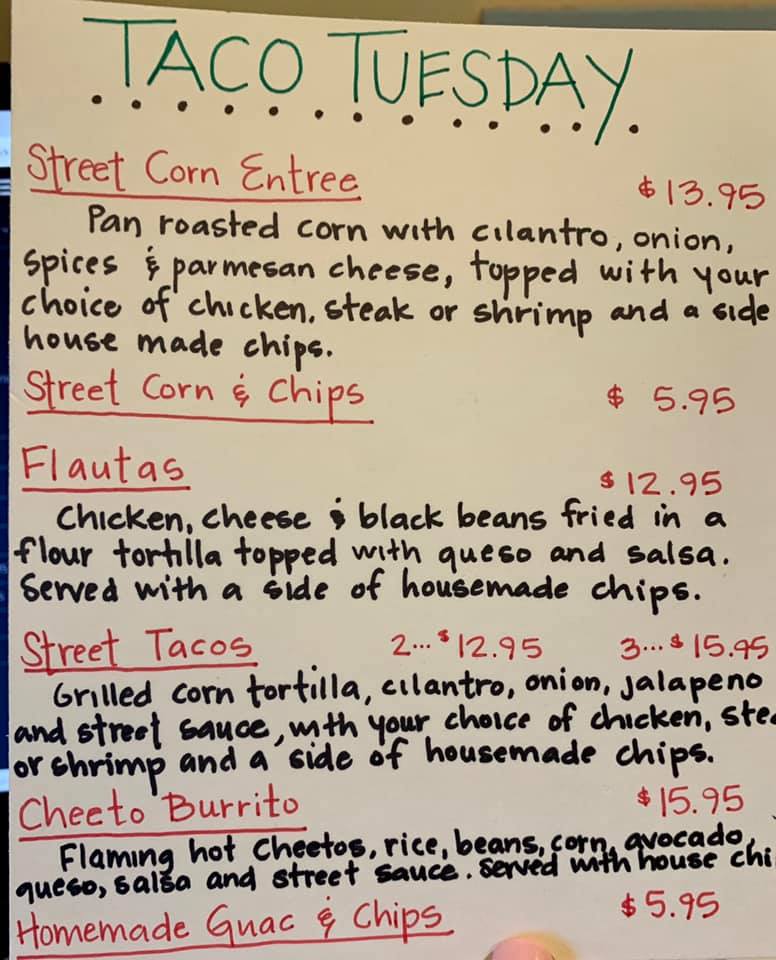 TACO TUESDAY
Street Corn Entree $13.95
Pan roasted corn with cilantro, onion,
spices & parmesan cheese, topped with your
choice of chicken, steak or shrimp and a side
house made chips.
Street Corn & Chips $ 5.95
Flautas $12.95
Chicken, cheese & black beans fried in a
flour tortilla topped with queso and salsa.
Served with a side of housemade chips.
Street Tacos 2...$12.95 3...$15.95
Grilled corn tortilla, cilantro, onion, jalapeno
and street sauce, with your choice of chicken, stea
or shrimp and a side of housemade chips.
Cheeto Burrito $15.95
Flaming hot Cheetos, rice, beans, corn, avocado,
queso, salsa and street sauce. Served with house chi
Homemade Guac & Chips $5.95